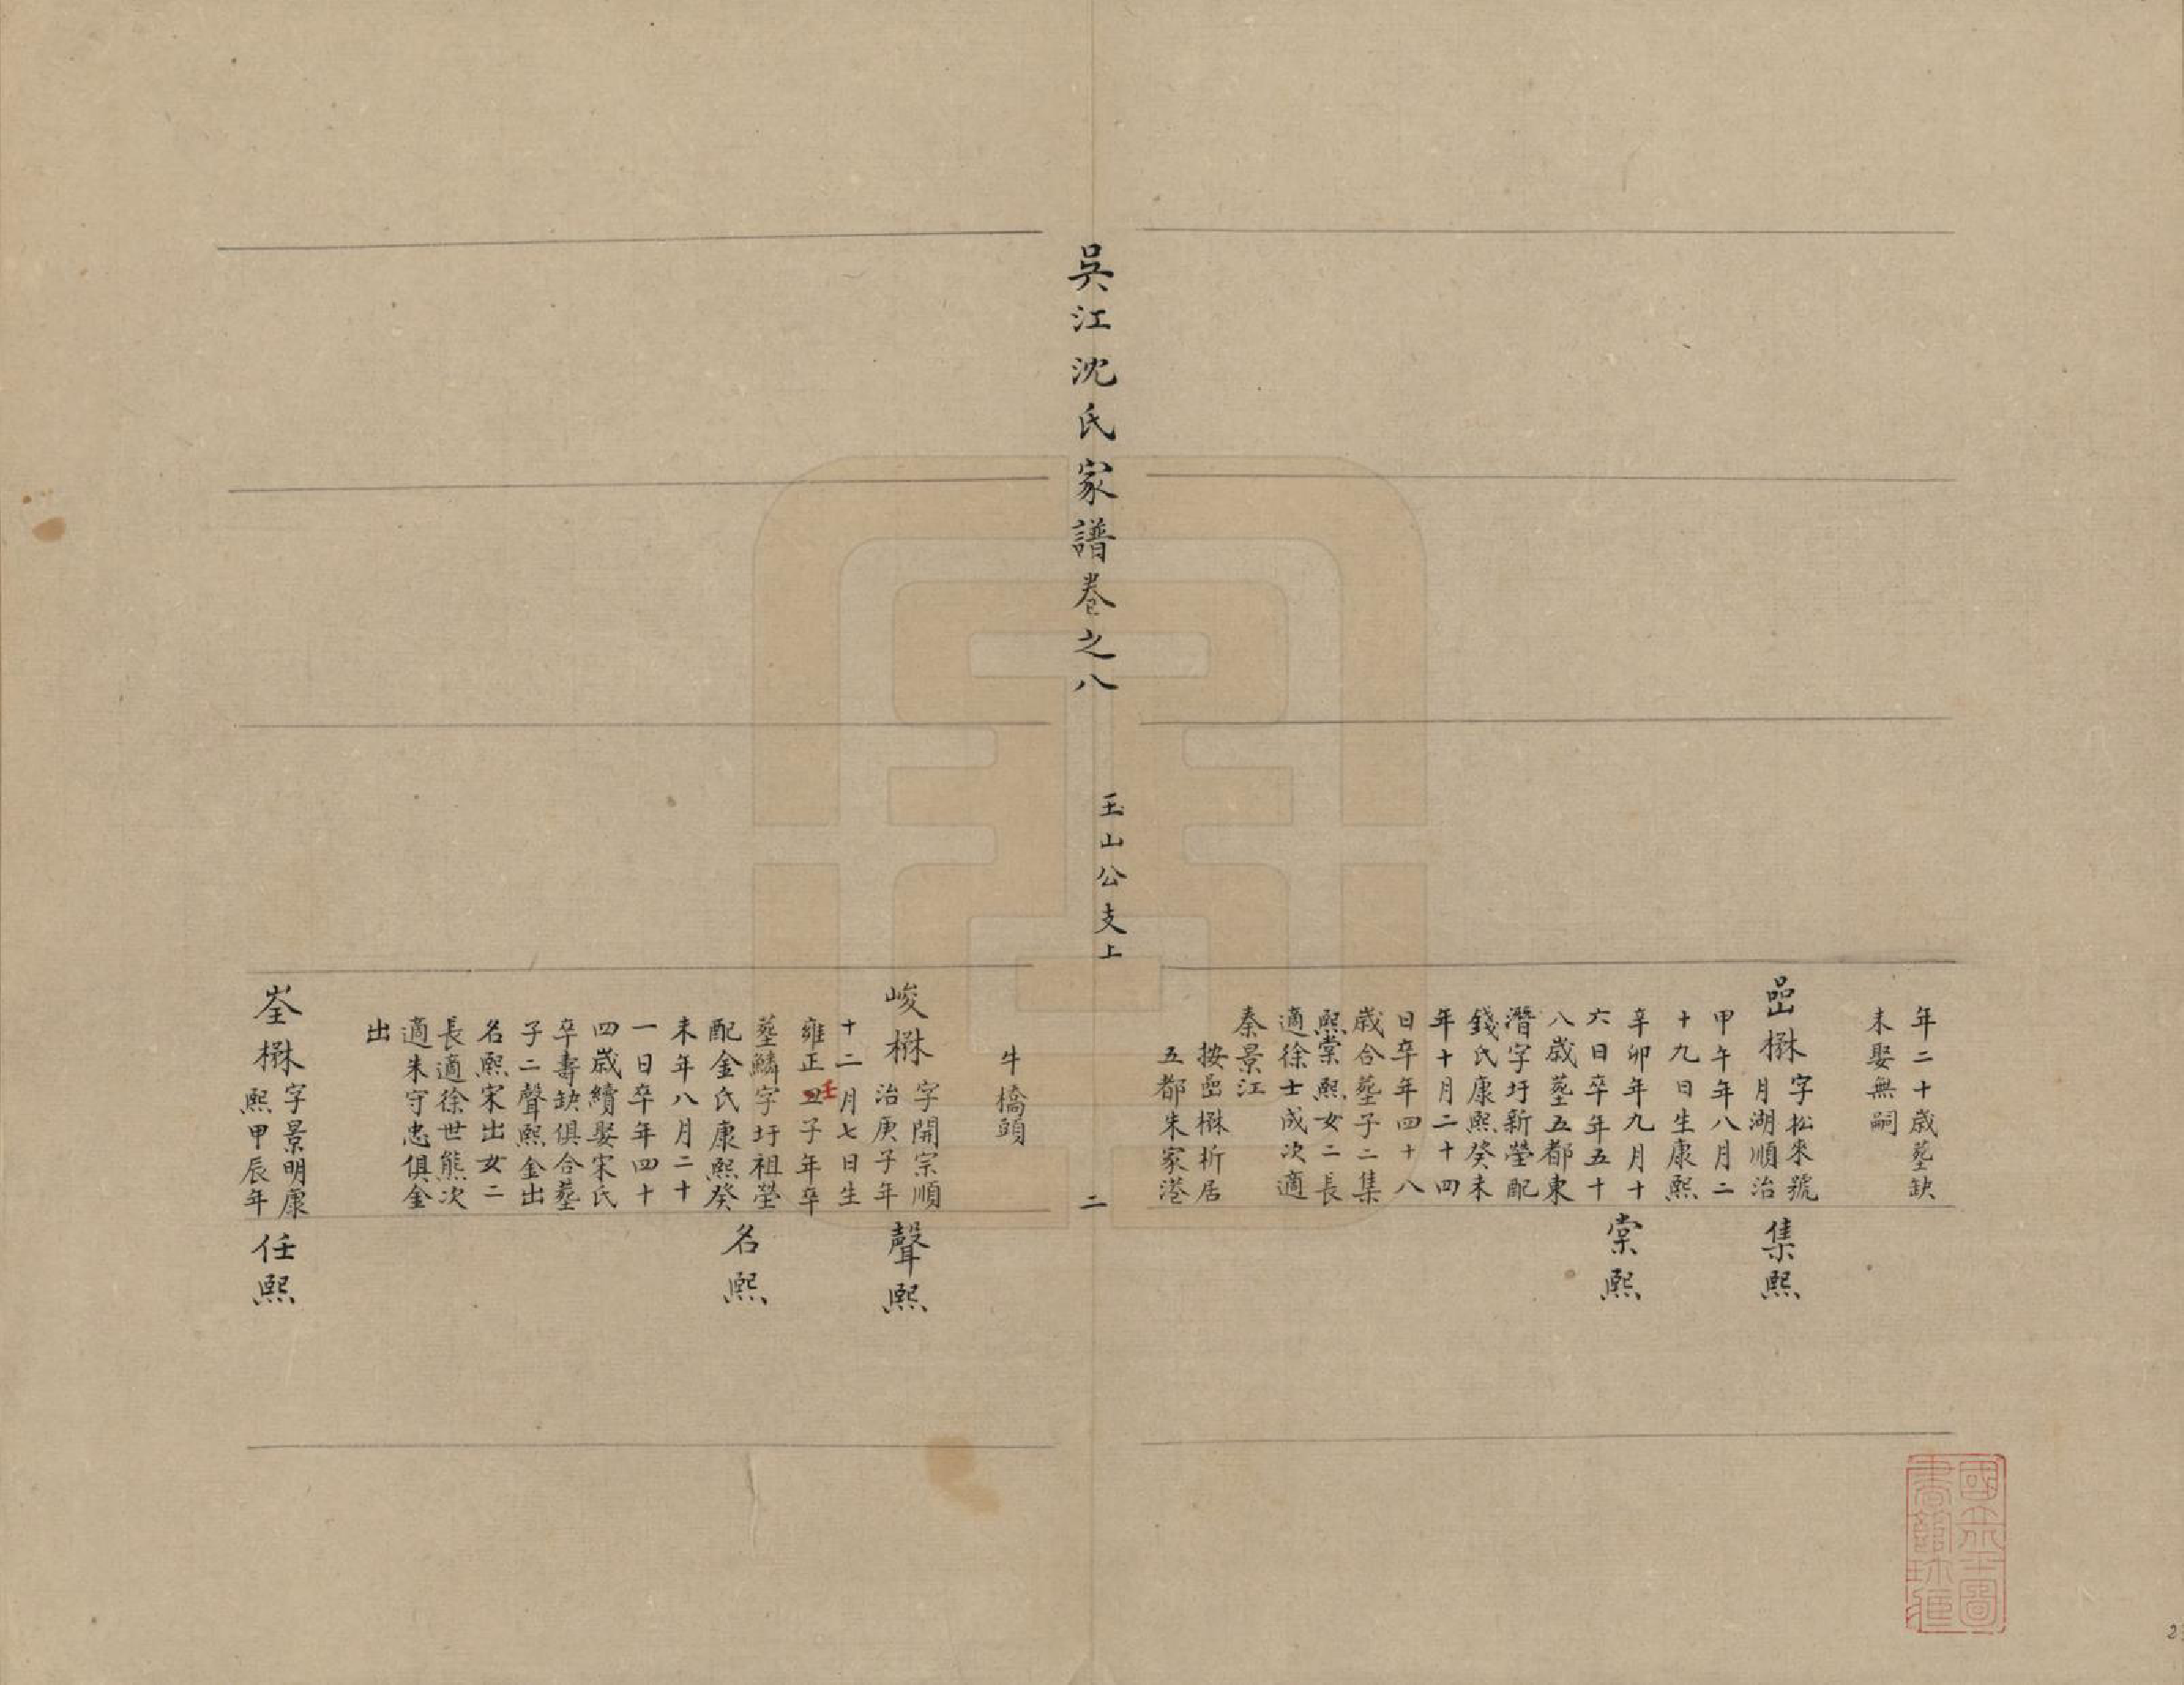 年二十歲塟缺
未娶無嗣
嵒楙字松來號
月湖順治
甲午年八月二
十九日生康熙
辛卯年九月十
六日卒年五十
八歲塟五都東
潛字圩新塋配
錢氏康熙癸未
年十月二十四
日卒年四十八
歲合塟子二集
熙棠熙女二長
適徐士成次適
秦景江
按嵒楙析居
五都朱家港
集熙
棠熙
吳江沈氏家譜卷之八
玉山公支上
二
牛橋頭
峻楙字開宗順
治庚子年
十二月七日生
雍正壬子年卒
塟鱗字圩祖塋
配金氏康熙癸
未年八月二十
一日卒年四十
四歲續娶宋氏
卒壽缺俱合塟
子二聲熙金出
名熙宋出女二
長適徐世熊次
適朱守忠俱金
出
聲熙
名熙
峑楙字景明康
熙甲辰年
任熙
國立北平圖
書館珍藏